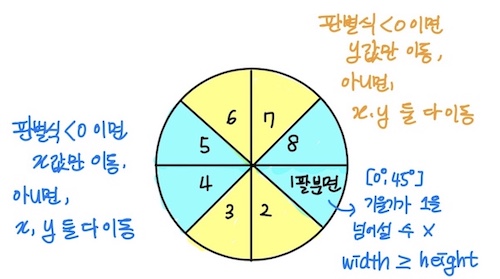 판별식 < 0 이면
y값만 이동,
아니면,
x, y 둘 다 이동
판별식 < 0 이면
x값만 이동,
아니면,
x, y 둘 다 이동
6
7
5
8
4
1팔분면
3
2
[0°, 45°]
기울기가 1을
넘어설 수 X
width ≥ height